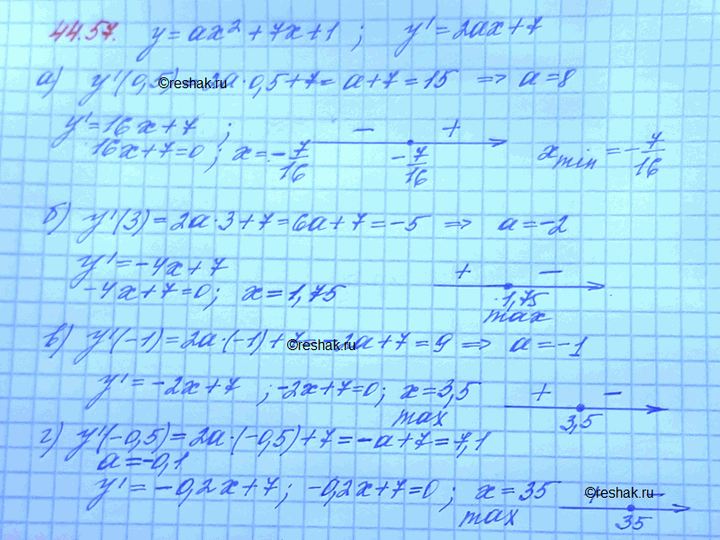 44.57. y = ax² + 7x + 1 ; y' = 2ax + 7
а) y'(0,5) = 2a·0,5+7 = a+7 = 15 ⇒ a = 8
©reshak.ru
y' = 16x + 7 ; − +
16x+7=0 ; x = -7/16 -7/16 x min = -7/16
б) y'(3) = 2a·3+7 = 6a+7 = -5 ⇒ a = -2
y' = -4x + 7 + −
-4x+7=0; x = 1,75 1,75
max
в) y'(-1) = 2a·(-1)+7 = -2a+7 = 9 ⇒ a = -1
©reshak.ru
y' = -2x+7 ; -2x+7=0; x = 3,5 + −
max 3,5
г) y'(-0,5) = 2a·(-0,5)+7 = -a+7 = 7,1
a = -0,1
y' = -0,2x+7; -0,2x+7=0 ; x = 35 −
©reshak.ru
max 35